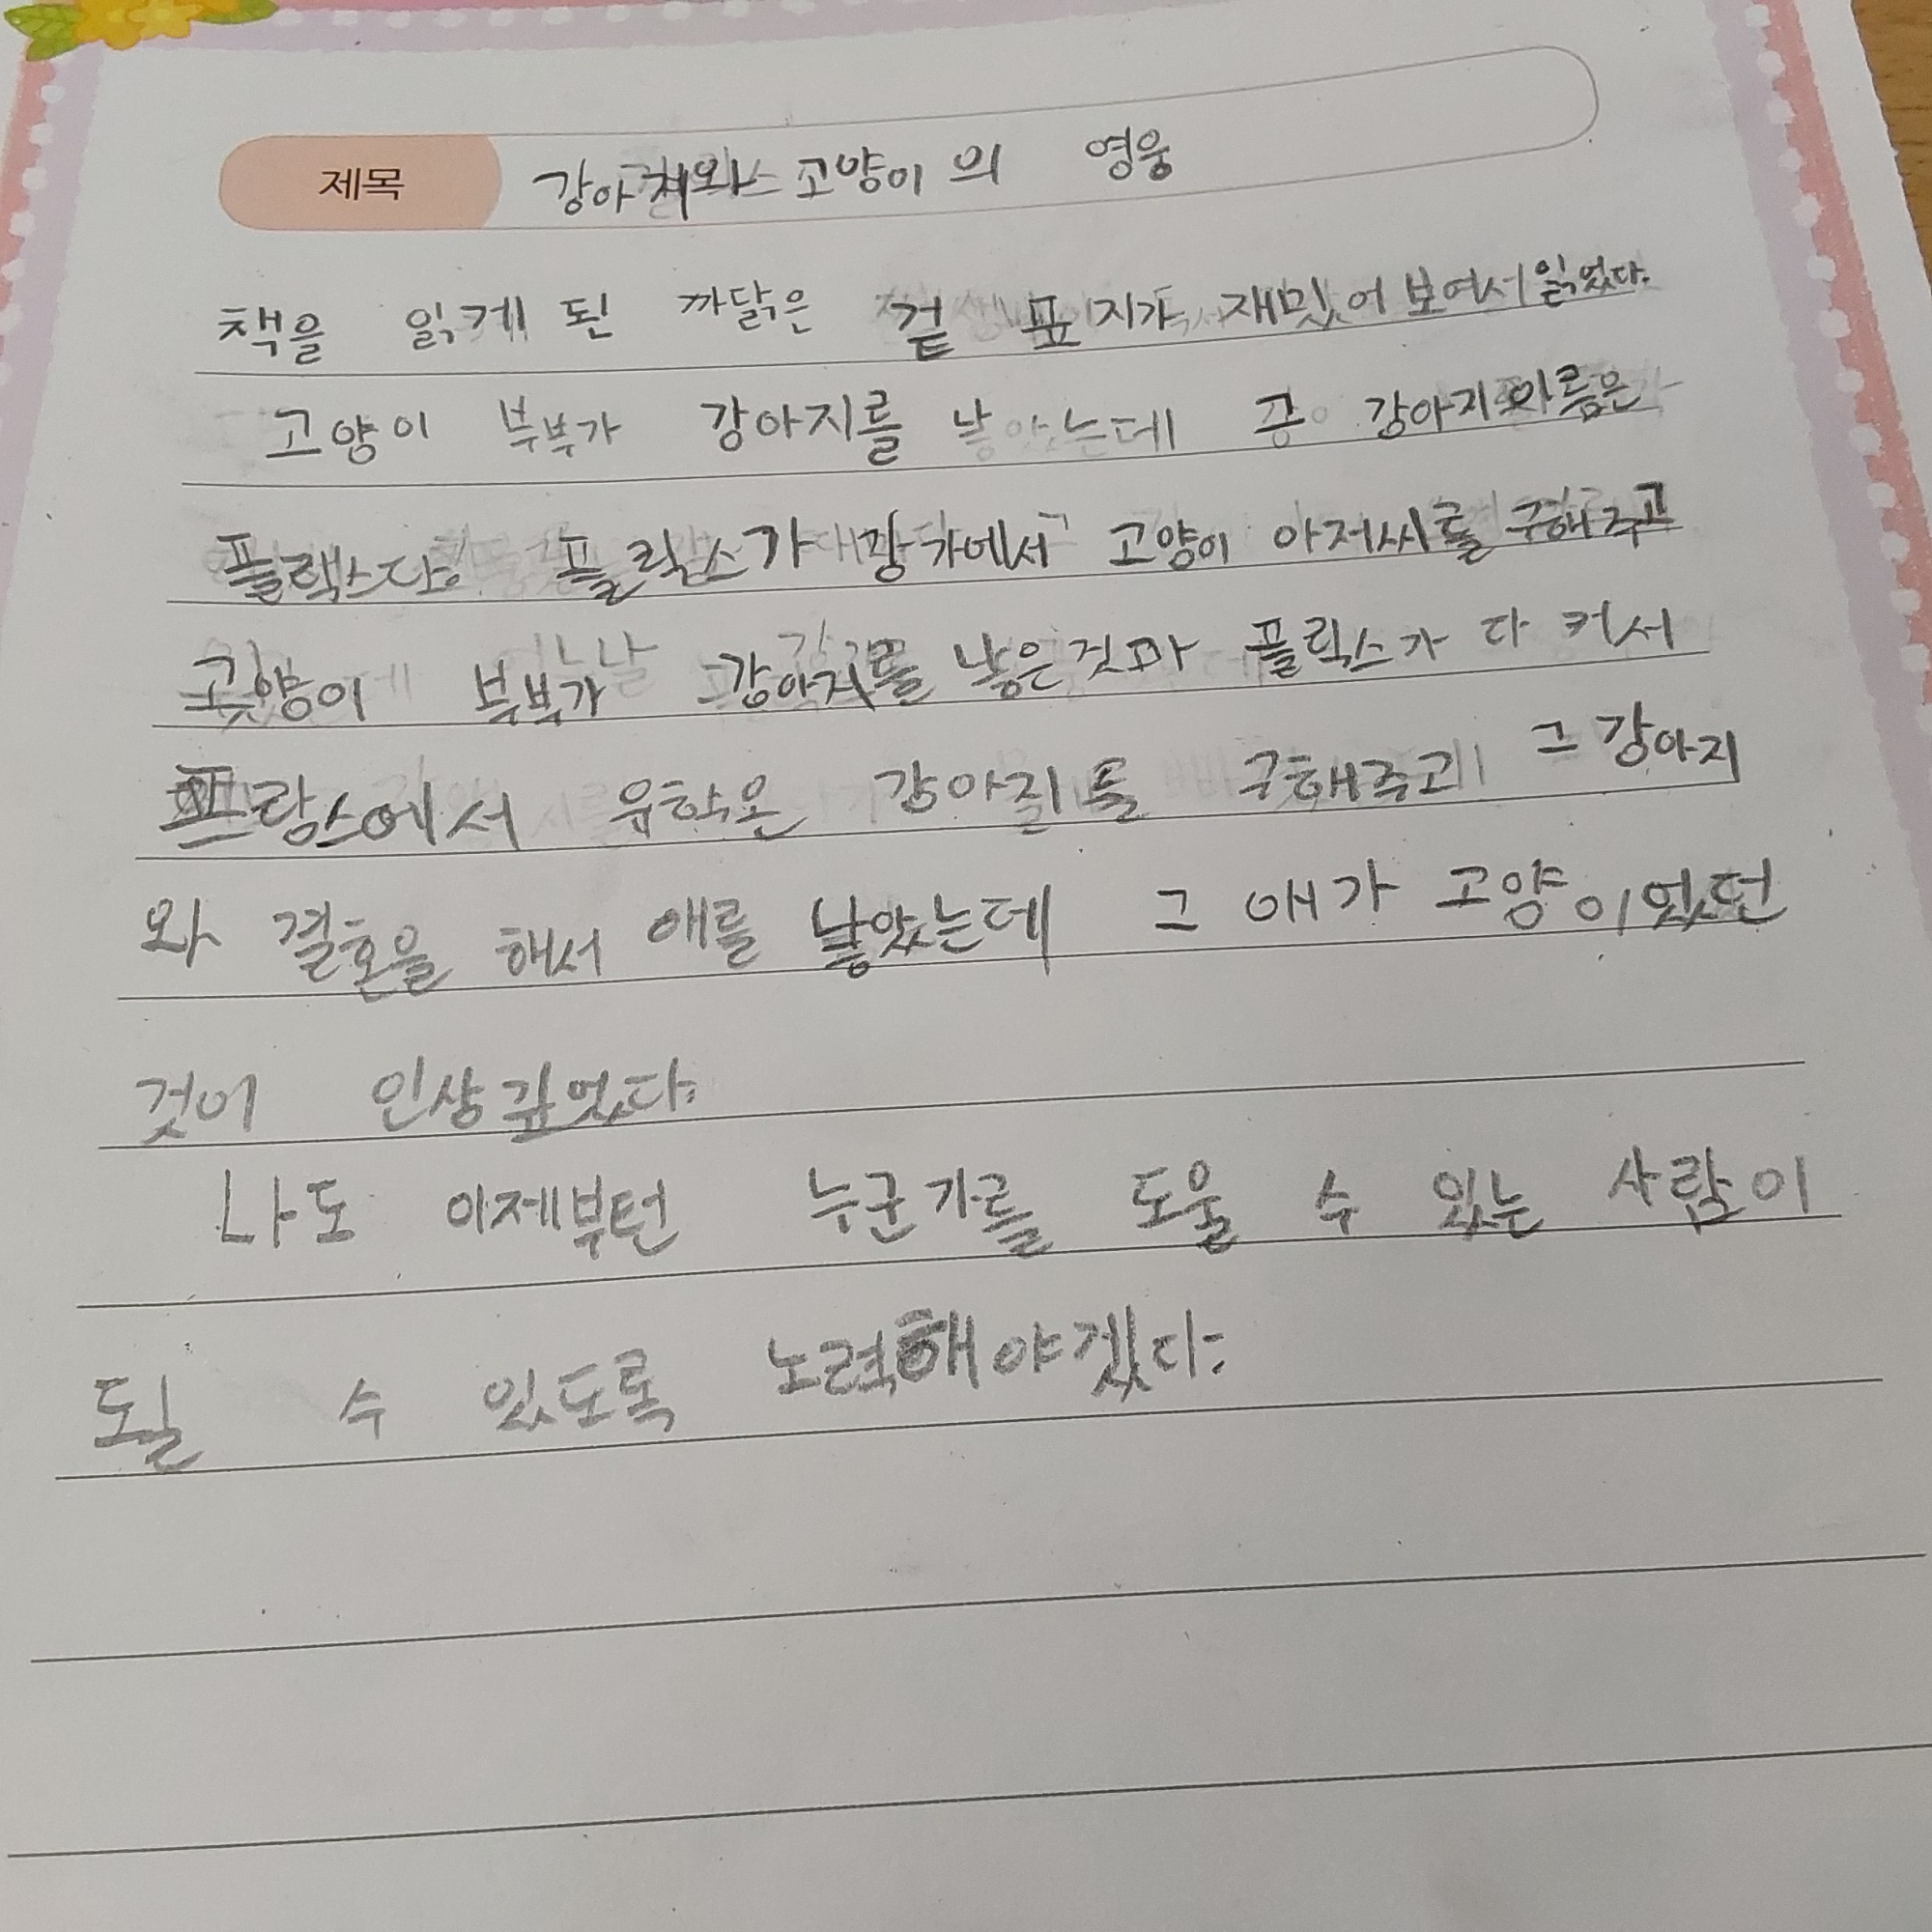 제목 강아지와 고양이의 영웅
책을 읽게 된 까닭은 겉 표지가 재밌어 보여서 읽었다.
고양이 부부가 강아지를 낳았는데 그 강아지 이름은
플랙스다. 플릭스가 강가에서 고양이 아저씨를 구해주고
고양이 부부가 강아지를 낳은것과 플릭스가 다 커서
프랑스에서 유학온 강아지를 구해주고 그 강아지
와 결혼을 해서 애를 낳았는데 그 애가 고양이었던
것이 인상깊었다.
나도 이제부턴 누군가를 도울 수 있는 사람이
될 수 있도록 노력해야겠다.